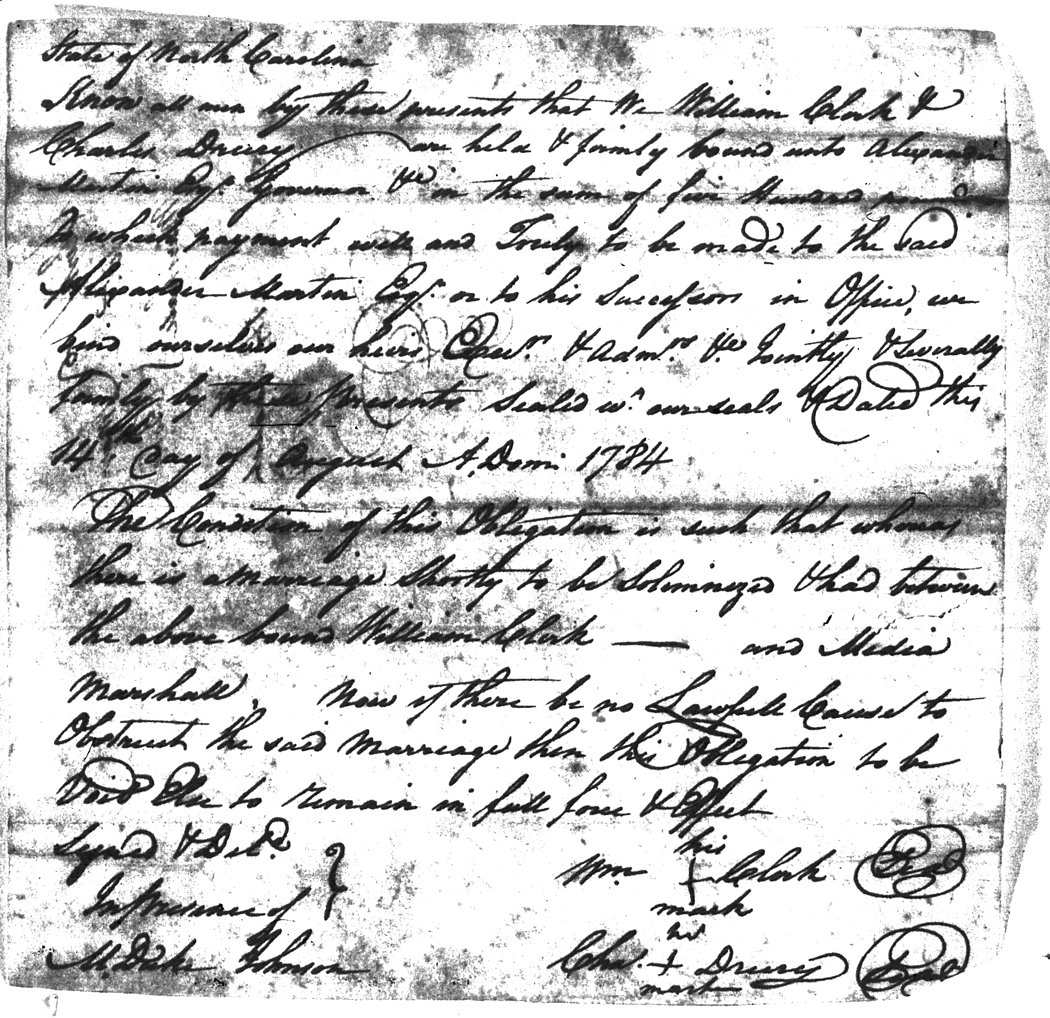 State of North Carolina
Know all men by these presents that We William Clork &
Charles Drury are held & firmly bound unto Alexander
Martin Esqr. Governor &c in the sum of five Hundred pound
To which payment well and Truly to be made to the said
Alexander Martin Esqr. or to his Successors in Office, we
bind ourselves our heirs Exrs. & Admrs. &c. Jointly & Severally
firmly by these presents Sealed wt. our seals & Dated this
14th Day of August A. Domi 1784
The Condition of this Obligation is such that whereas
there is a Marriage Shortly to be Solimnezed & had between
the above bound William Clork — and Media
Marshall, Now if there be no Lawfull Cause to
Obstruct the said Marriage then this Obligation to be
Void Else to remain in full force & Effect
Signed & Deld.
In presence of
M. Duke Johnson
his
Wm + Clork Seal
mark
his
Chs. + Drury Seal
mark